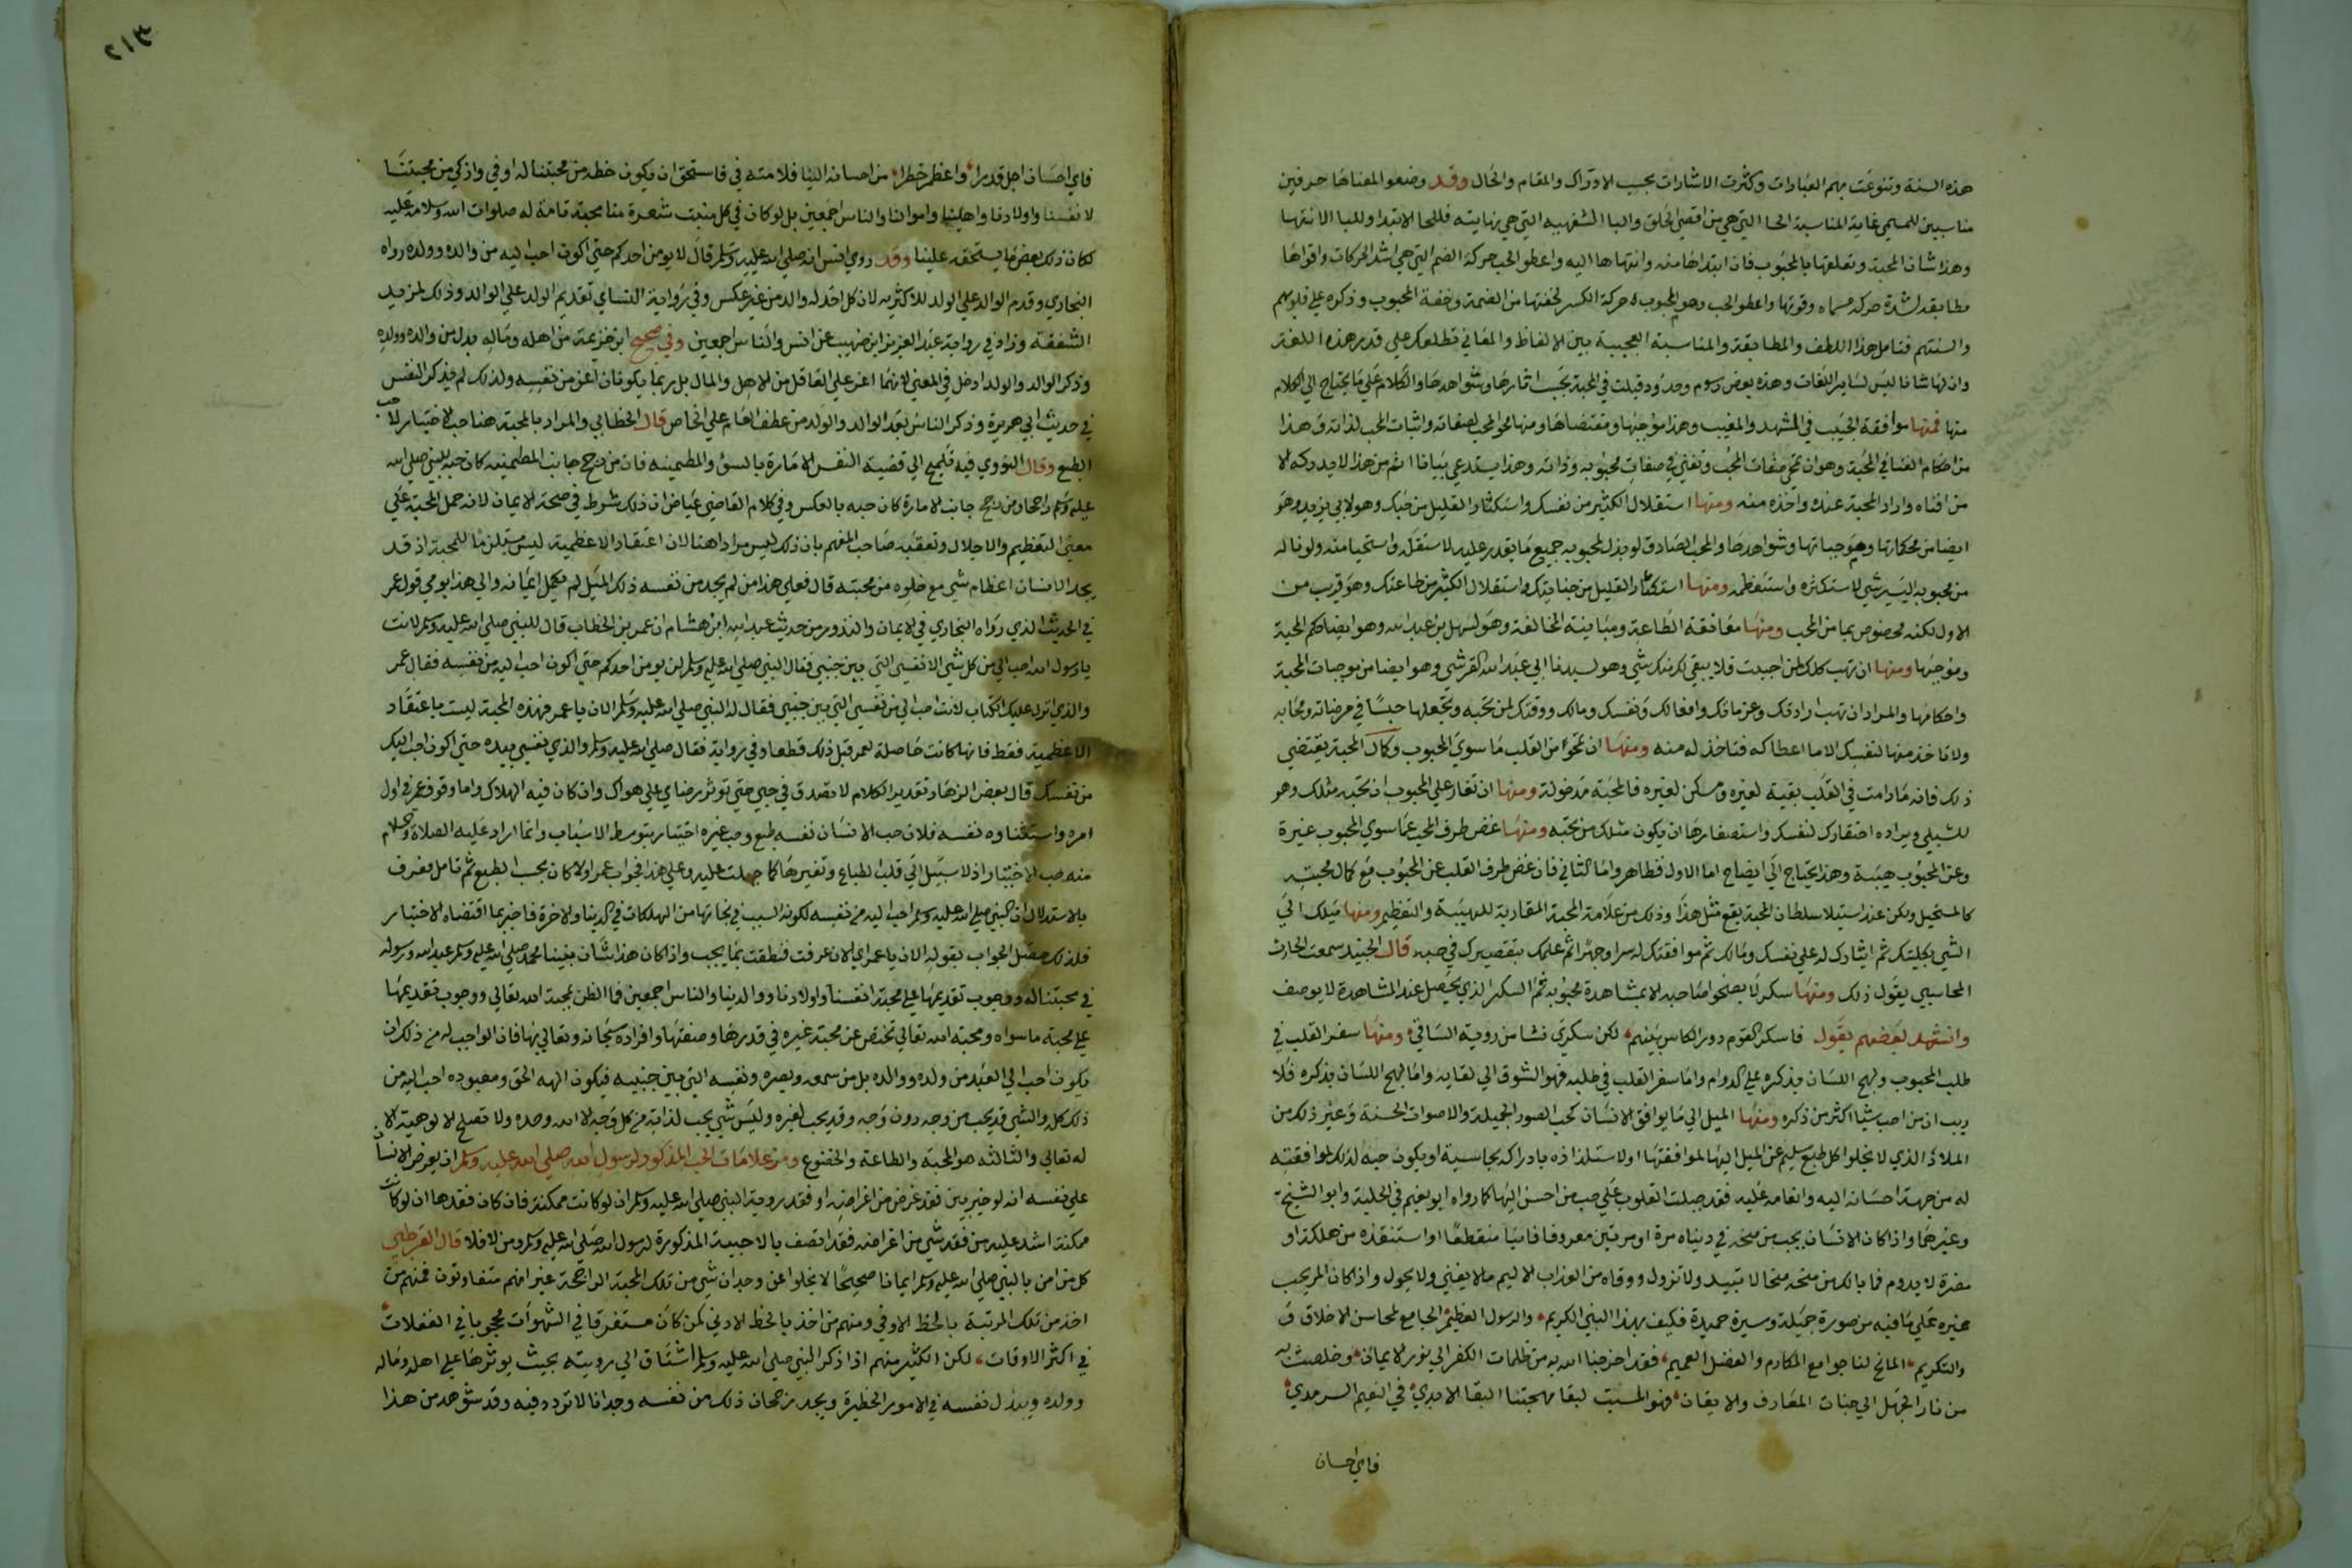 هذه السنة وتنوعت بهم العبارات وكثرت الاشارات بحسب الادراك والمقام والحال وقد وضعوا لمعناها حرفين
مناسبين للمسمي غاية المناسبة الحا التي هي من اقصي الحلق والبا الشفهيه التي هي نهايته فللحا الابتدا وللبا الانتها
وهذا شان المحبة وتعلقها بالمحبوب فان ابتداها منه وانتهاها اليه واعطو الحب حركة الضم التي هي اشد الحركات واقواها
مطابقة لشدة حركة مسماه وقوتها واعطو الحب وهو المحبوب حركة الكسر لخفتها من الضمة وخفة المحبوب وذكره علي قلوبهم
والسنتهم فتامل هذا اللطف والمطابقة والمناسبة العجيبة بين الالفاظ والمعاني تطلعك علي قدر هذه اللغة
وان لها شانا ليس لساير اللغات وهذه بعض رسوم وحدود قيلت في المحبة بحسب اثارها وشواهدها والكلام علي ما يحتاج الي الكلام
منها فمنها موافقة الحبيب في المشهد والمغيب وهذا موجبها ومقتضاها ومنها محو المحب لصفاته واثبات المحب لذاته وهذا
من احكام الفنا في المحبة وهو ان تمحي صفات المحب وتفني في صفات محبوبه وذاته وهذا يستدعي بيانا اتم من هذا لا يدركه الا
من افناه وارد المحبة عنه واخذه منه ومنها استقلال الكثير من نفسك واستكثار القليل من حبك وهو لابي يزيد وهو
ايضا من احكامها وموجباتها وشواهدها والمحب الصادق لو بذل لمحبوبه جميع ما يقدر عليه لاستقله واستحيا منه ولو ناله
من محبوبه اليسير شي لاستكثره واستعظمه ومنها استكثار القليل من جنايتك واستقلال الكثير من طاعتك وهو قريب من
الاول لكنه مخصوص بما من المحب ومنها معانقة الطاعة ومباينة المخالفة وهو لسهل بن عبد الله وهو ايضا حكم المحبة
وموجبها ومنها ان تهب كلك لمن احببت فلا يبقي لك منك شي وهو لسيدنا ابي عبد الله القرشي وهو ايضا من موجبات المحبة
واحكامها والمراد ان تهب ارادتك وعزماتك وافعالك ونفسك ومالك ووقتك لمن تحبه وتجعلها حبسا في مرضاته ومحابه
ولا تاخذ منها لنفسك الا ما اعطاكه فتاخذ له منه ومنها ان تمحو من القلب ما سوي المحبوب وكمال المحبة يقتضي
ذلك فانه ما دامت في القلب بقية لغيره ومسكن لغيره فالمحبة مدخولة ومنها ان تغار علي المحبوب ان يحبه مثلك وهو
للشبلي ومراده احتقارك لنفسك واستصغارها ان يكون مثلك من يحبه ومنها غض طرف المحب عما سوي المحبوب غيرة
وعن المحبوب هيبة وهذا يحتاج الي ايضاح اما الاول فظاهر واما الثاني فان غض طرف القلب عن المحبوب مع كمال محبته
كالمستحيل ولكن عند استيلا سلطان المحبة يقع مثل هذا وذلك من علامة المحبة المقارنة للهيبة والتعظيم ومنها ميلك الي
الشي بكليتك ثم ايثارك له علي نفسك ومالك ثم موافقتك له سرا وجهرا ثم علمك بتقصيرك في حبه قال الجنيد سمعت الحارث
المحاسبي يقول ذلك ومنها سكر لا يصحوا صاحبه الا بمشاهدة محبوبه ثم السكر الذي يحصل عند المشاهدة لا يوصف
وانشد بعضهم يقول فاسكر القوم دور الكاس بينهم لكن سكري نشا من روية الساقي ومنها سفر القلب في
طلب المحبوب ولهج اللسان بذكره علي الدوام واما سفر القلب في طلبه فهو الشوق الي لقايه واما لهج اللسان بذكره فلا
ريب ان من احب شيا اكثر من ذكره ومنها الميل الي ما يوافق الانسان كحب الصور الجميلة والاصوات الحسنة وغير ذلك من
الملاذ الذي لا يخلوا كل طبع سليم عن الميل اليها لموافقتها او لاستلذاذه بادراكه بحاسية او يكون حبه لذلك لموافقته
له من جهة احسانه اليه وانعامه عليه فقد جبلت القلوب علي حب من احسن اليها كما رواه ابو نعيم في الحلية وابو الشيخ
وغيرهما واذا كان الانسان يحب من منحه في دنياه مرة او مرتين معروفا فانيا منقطعا او استنقذه من هلكة او
مضرة لا يدوم فما بالك بمن منحه منحا لا تبيد ولا تزول ووقاه من العذاب الاليم ما لا يفني ولا يحول واذا كان المر يحب
غيره علي ما فيه من صورة جميلة وسيرة حميدة فكيف بهذا النبي الكريم والرسول العظيم الجامع لمحاسن الاخلاق و
والتكريم المانح لنا جوامع المكارم والفضل العميم فقد اخرجنا الله به من ظلمات الكفر الي نور الايمان وخلصنا به
من نار الجهل الي جنات المعارف والايقان فهو السبب لبقا مهجتنا البقا الابدي في النعيم السرمدي
فاي احسان
٢١٣
فاي احسان اجل قدرا واعظم خطرا من احسانه الينا فلا منه في فاستحق ان يكون حظه من محبتنا له اوفي وازكي من محبتنا
لانفسنا واولادنا واهلينا واموالنا والناس اجمعين بل لو كان في كل منبت شعرة منا محبة تامة له صلوات الله وسلامه عليه
لكان ذلك بعض ما يستحقه علينا وقد روي انس انه صلي الله عليه وسلم قال لا يومن احدكم حتي اكون احب اليه من والده وولده رواه
البخاري وقدم الوالد علي الولد للاكثريه لان كل احد له والد من غير عكس وفي رواية النساي تقديم الولد علي الوالد وذلك لمزيد
الشفقة وزاد في رواية عبد العزيز ابن صهيب عن انس والناس اجمعين وفي صحيح ابن خزيمة من اهله وماله بدل من والده وولده
وذكر الوالد والولد ادخل في المعني لانهما اعز علي العاقل من الاهل والمال بل ربما يكونان اعز من نفسه ولذلك لم يذكر النفس
في حديث ابي هريرة وذكر الناس بعد الوالد والولد من عطف العام علي الخاص قال الخطابي والمراد بالمحبة هنا حب الاختيار لا حب
الطبع وقال النووي فيه تلميح الي قضية النفس الامارة بالسوء والمطمينه فان من رجح جانب المطمينه كان حبه للنبي صلي الله
عليه وسلم راجحا ومن رجح جانب الامارة كان حبه بالعكس وفي كلام القاضي عياض ان ذلك شرط في صحة الايمان لانه حمل المحبة علي
معني التعظيم والاجلال وتعقبه صاحب المفهم بان ذلك ليس مرادا هنا لان اعتقاد الاعظمية ليس مستلزما للمحبة اذ قد
يجد الانسان اعظام شي مع خلوه من محبته قال فعلي هذا من لم يجد من نفسه ذلك الميل لم يكمل ايمانه والي هذا يومي قول عمر
في الحديث الذي رواه البخاري في الايمان والنذور من حديث عبد الله ابن هشام ان عمر بن الخطاب قال للنبي صلي الله عليه وسلم لانت
يا رسول الله احب الي من كل شي الا نفسي التي بين جنبي فقال النبي صلي الله عليه وسلم لن يومن احدكم حتي اكون احب اليه من نفسه فقال عمر
والذي انزل عليك الكتاب لانت احب الي من نفسي التي بين جنبي فقال له النبي صلي الله عليه وسلم الان يا عمر فهذه المحبة ليست باعتقاد
الاعظمية فقط فانها كانت حاصلة لعمر قبل ذلك قطعا وفي رواية فقال صلي الله عليه وسلم والذي نفسي بيده حتي اكون احب اليك
من نفسك قال بعض الزهاد تقدير الكلام لا تصدق في حبي حتي توثر رضاي علي هواك وان كان فيه الهلاك واما وقوف عمر في اول
امره واستثناوه نفسه فلان حب الانسان نفسه طبع وحب غيره اختيار بتوسط الاسباب وانما اراد عليه الصلاة والسلام
منه حب الاختيار اذ لا سبيل الي قلب الطباع وتغييرها كما جبلت عليه وعلي هذا فجواب عمر اولا كان بحسب الطبع ثم تامل فعرف
بالاستدلال ان النبي صلي الله عليه وسلم احب اليه من نفسه لكونه السبب في نجاتها من الهلكات في الدينا والاخرة فاخبر بما اقتضاه الاختيار
فلذلك حصل الجواب بقوله الان يا عمر اي الان عرفت فنطقت بما يجب واذا كان هذا شان نبينا محمد صلي الله عليه وسلم عبد الله ورسوله
في محبتنا له ووجوب تقديمها علي محبة انفسنا واولادنا ووالدينا والناس اجمعين فما الظن بمحبة الله تعالي ووجوب تقديمها
علي محبة ما سواه ومحبة الله تعالي تختص عن محبة غيره في قدرها وصفتها وافراده سبحانه وتعالي بها فان الواجب له من ذلك ان
يكون احب الي العبد من ولده ووالده بل من سمعه وبصره ونفسه التي بين جنبيه فيكون الهه الحق ومعبوده احب اليه من
ذلك كله والشي قد يحب من وجه دون وجه وقد يحب لغيره وليس شي يحب لذاته من كل وجه الا الله وحده ولا تصلح الالوهية الا
له تعالي والثالثه هو المحبة والطاعة والخضوع ومن علامات الحب المذكور لرسول الله صلي الله عليه وسلم ان يعرض الانسان
علي نفسه انه لو خير بين فقد غرض من اغراضه او فقد روية النبي صلي الله عليه وسلم ان لو كانت ممكنة فان كان فقدها ان لو كانت
ممكنة اشد عليه من فقد شي من اغراضه فقد اتصف بالاحبية المذكورة لرسول الله صلي الله عليه وسلم ومن لا فلا قال القرطبي
كل من امن بالنبي صلي الله عليه وسلم ايمانا صحيحا لا يخلوا عن وجدان شي من تلك المحبة الراجحة غير انهم متفاوتون فمنهم من
اخذ من تلك المرتبة بالحظ الاوفي ومنهم من اخذ بالحظ الادني كمن كان مستغرقا في الشهوات محجوبا في الغفلات
في اكثر الاوقات لكن الكثير منهم اذا ذكر النبي صلي الله عليه وسلم اشتاق الي رويته بحيث يوثرها علي اهله وماله
وولده ويبذل نفسه في الامور الخطيرة ويجد رجحان ذلك من نفسه وجدانا لا تردد فيه وقد شوهد من هذا